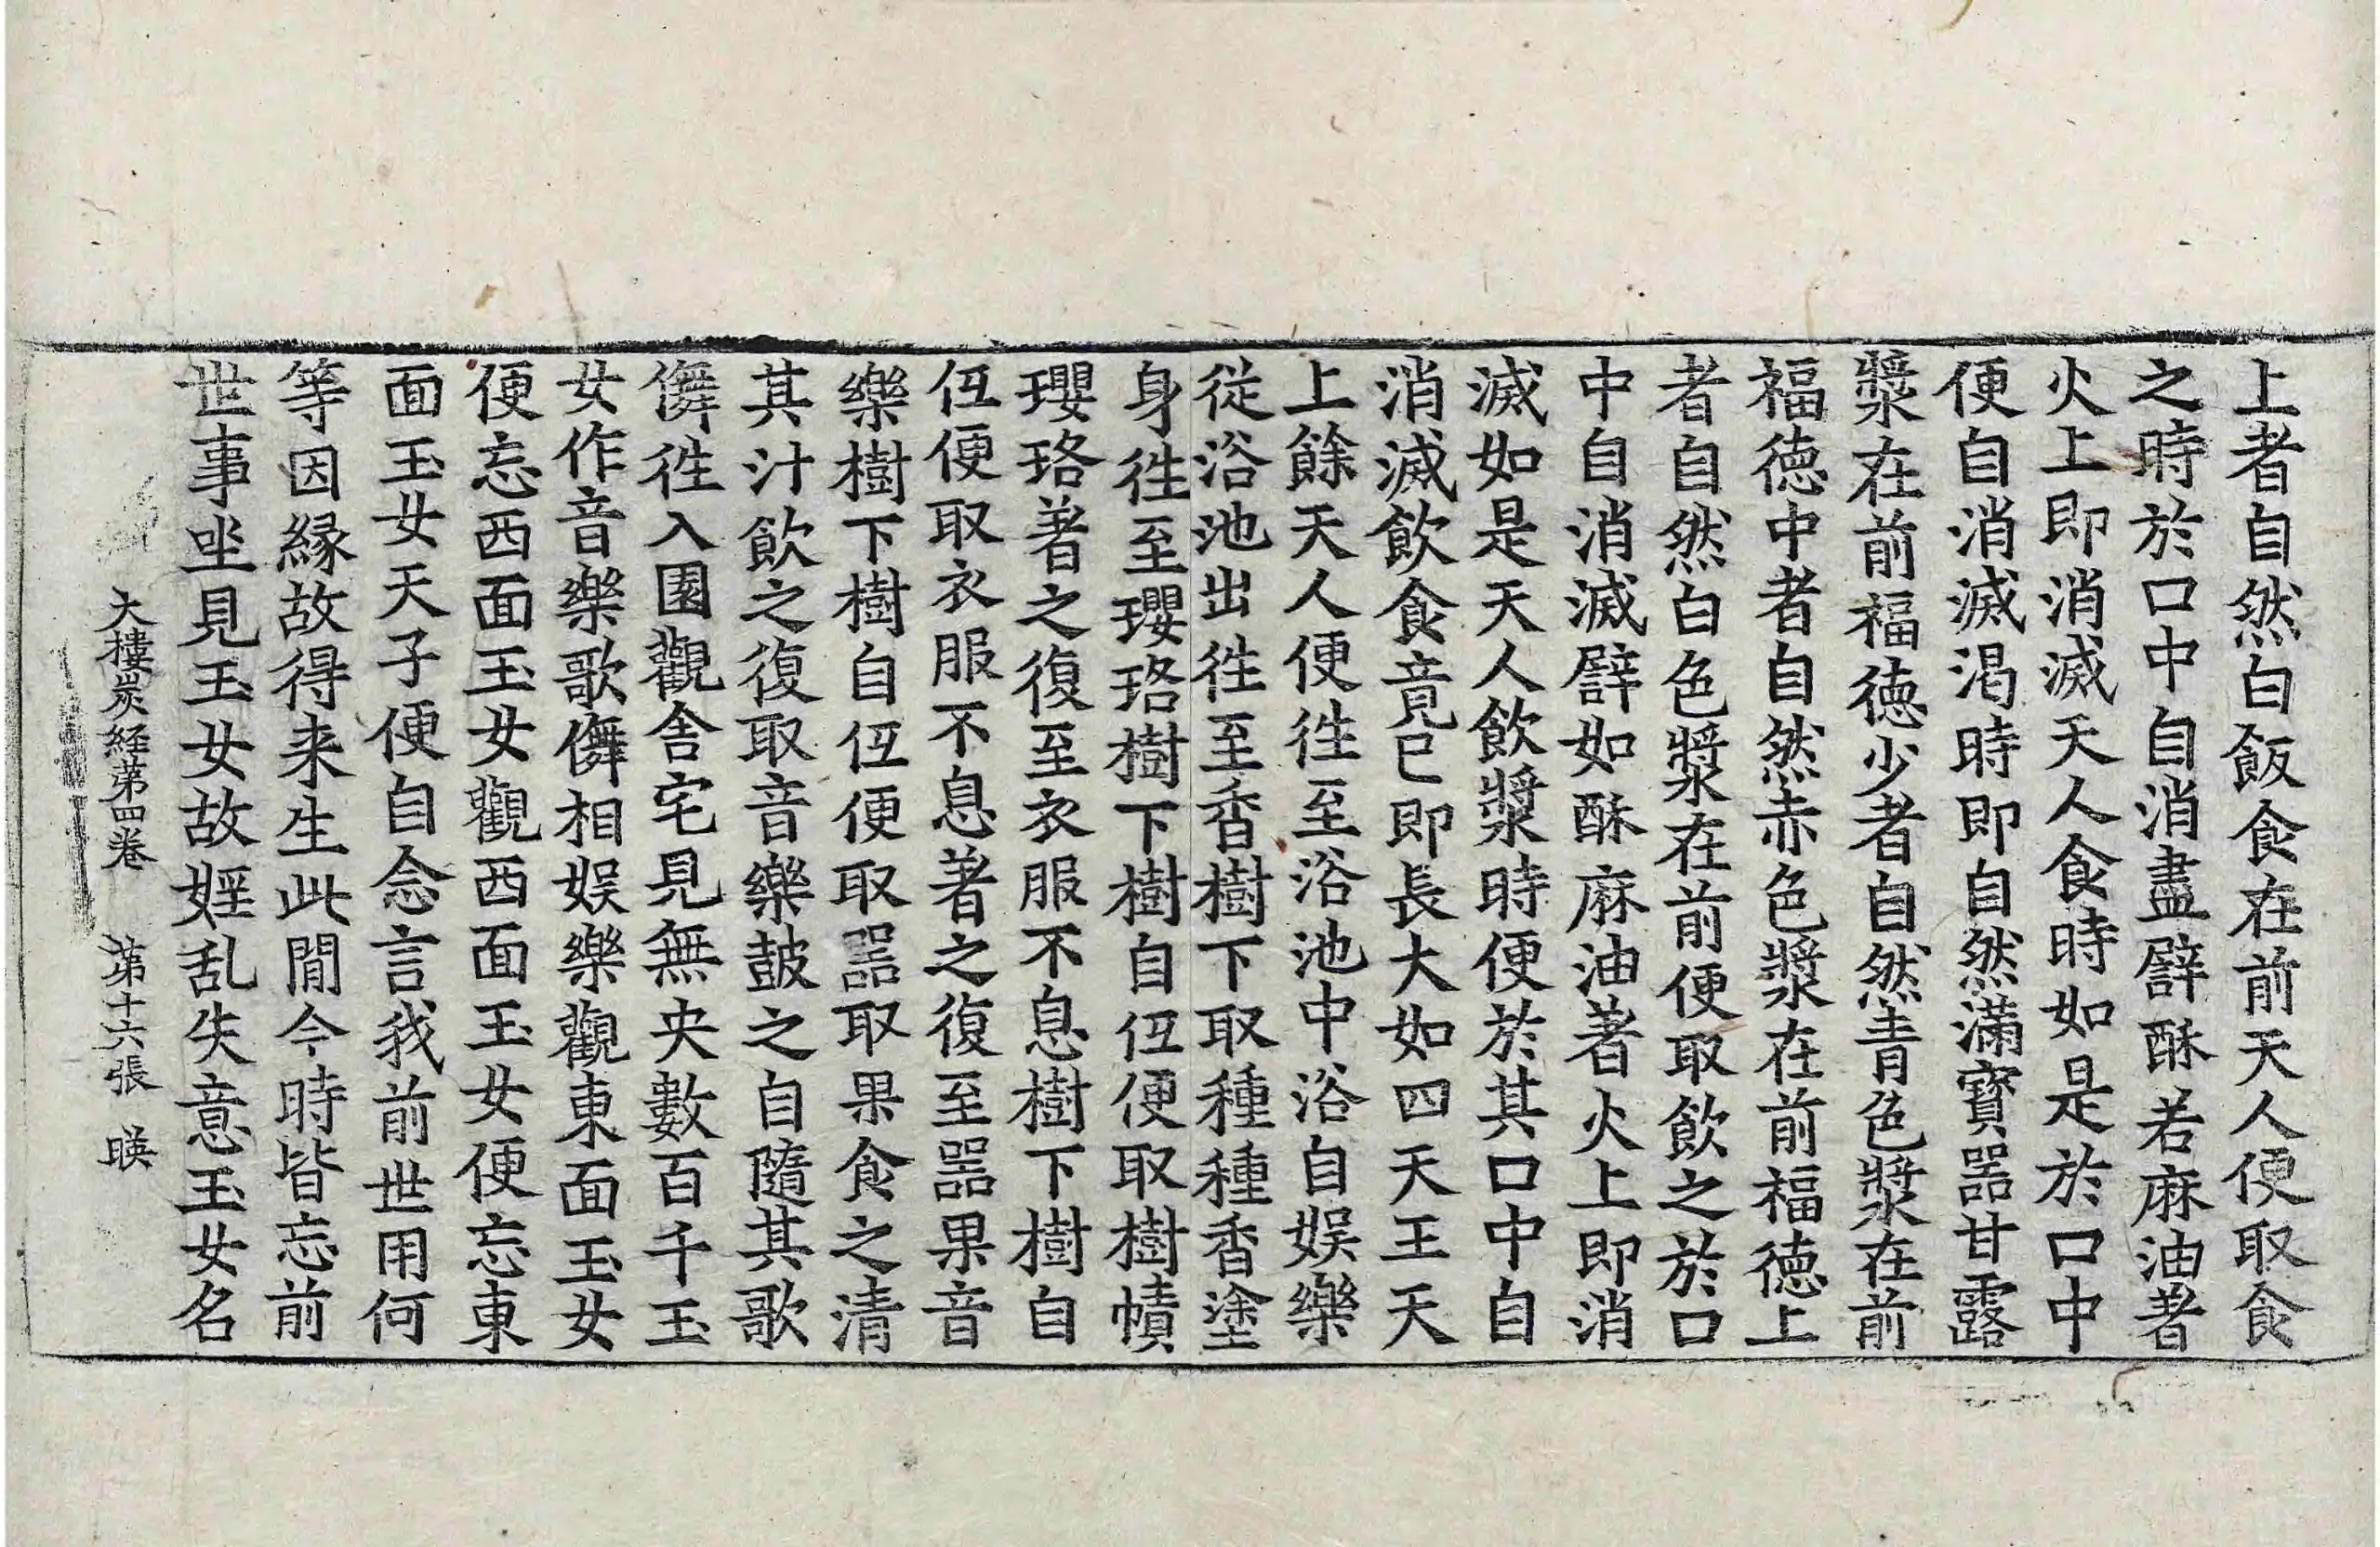 上者自然白飯食在前天人便取食
之時於口中自消盡譬酥若麻油著
火上即消滅天人食時如是於口中
便自消滅渴時即自然滿寶器甘露
漿在前福德少者自然青色漿在前
福德中者自然赤色漿在前福德上
者自然白色漿在前便取飲之於口
中自消滅譬如酥麻油著火上即消
滅如是天人飲漿時便於其口中自
消滅飲食竟已即長大如四天王天
上餘天人便徃至浴池中浴自娛樂
從浴池出徃至香樹下取種種香塗
身徃至瓔珞樹下樹自伍便取樹幘
瓔珞著之復至衣服不息樹下樹自
伍便取衣服不息著之復至器果音
樂樹下樹自伍便取器取果食之清
其汁飲之復取音樂皷之自隨其歌
儛徃入園觀舍宅見無央數百千玉
女作音樂歌儛相娛樂觀東面玉女
便忘西面玉女觀西面玉女便忘東
面玉女天子便自念言我前世用何
等因縁故得来生此閒今時皆忘前
世事坐見玉女故婬乱失意玉女名
大樓炭経第四卷 第十六張 暎